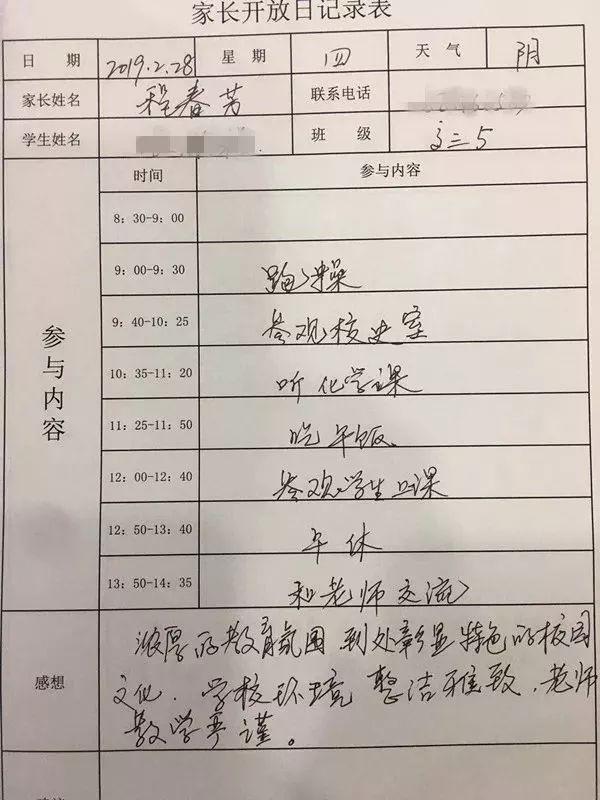 家长开放日记录表
日 期 2019.2.28 星 期 四 天 气 阴
家长姓名 程春芳 联系电话
学生姓名 班 级 高三5
参与内容
时间 参与内容
8:30-9:00
9:00-9:30 跑操
9:40-10:25 参观校史室
10:35-11:20 听化学课
11:25-11:50 吃午饭
12:00-12:40 参观学生口课
12:50-13:40 午休
13:50-14:35 和老师交流
感想
浓厚的教育氛围 到处彰显特色的校园
文化.学校环境整洁雅致.老师
教学严谨。